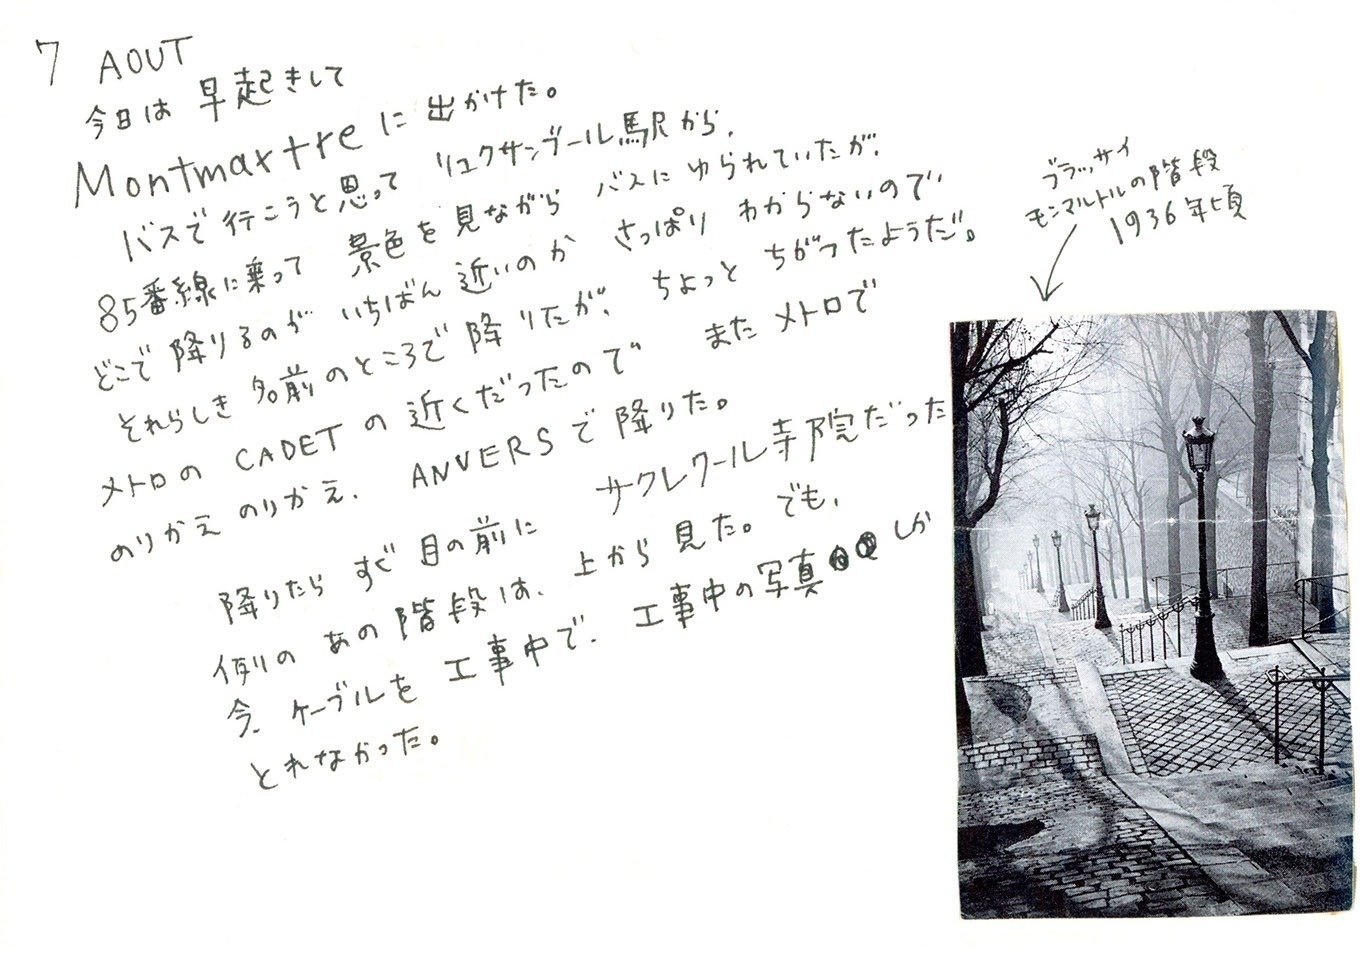 7 AOUT
今日は 早起きして
Montmartreに 出かけた。
バスで 行こうと思って リュクサンブール駅から、
85番線に乗って 景色を見ながら バスに ゆられていたが、
どこで 降りるのが いちばん 近いのか さっぱり わからないので
それらしき 名前のところで 降りたが、ちょっと ちがったようだ。
メトロの CADET の 近くだったので また メトロで
のりかえ のりかえ、ANVERS で 降りた。
降りたら すぐ 目の前に サクレクール寺院だった
例の あの 階段は、上から 見た。でも、
今、ケーブルを 工事中で、工事中の写真 しか
とれなかった。
ブラッサイ
モンマルトルの階段
1936年頃